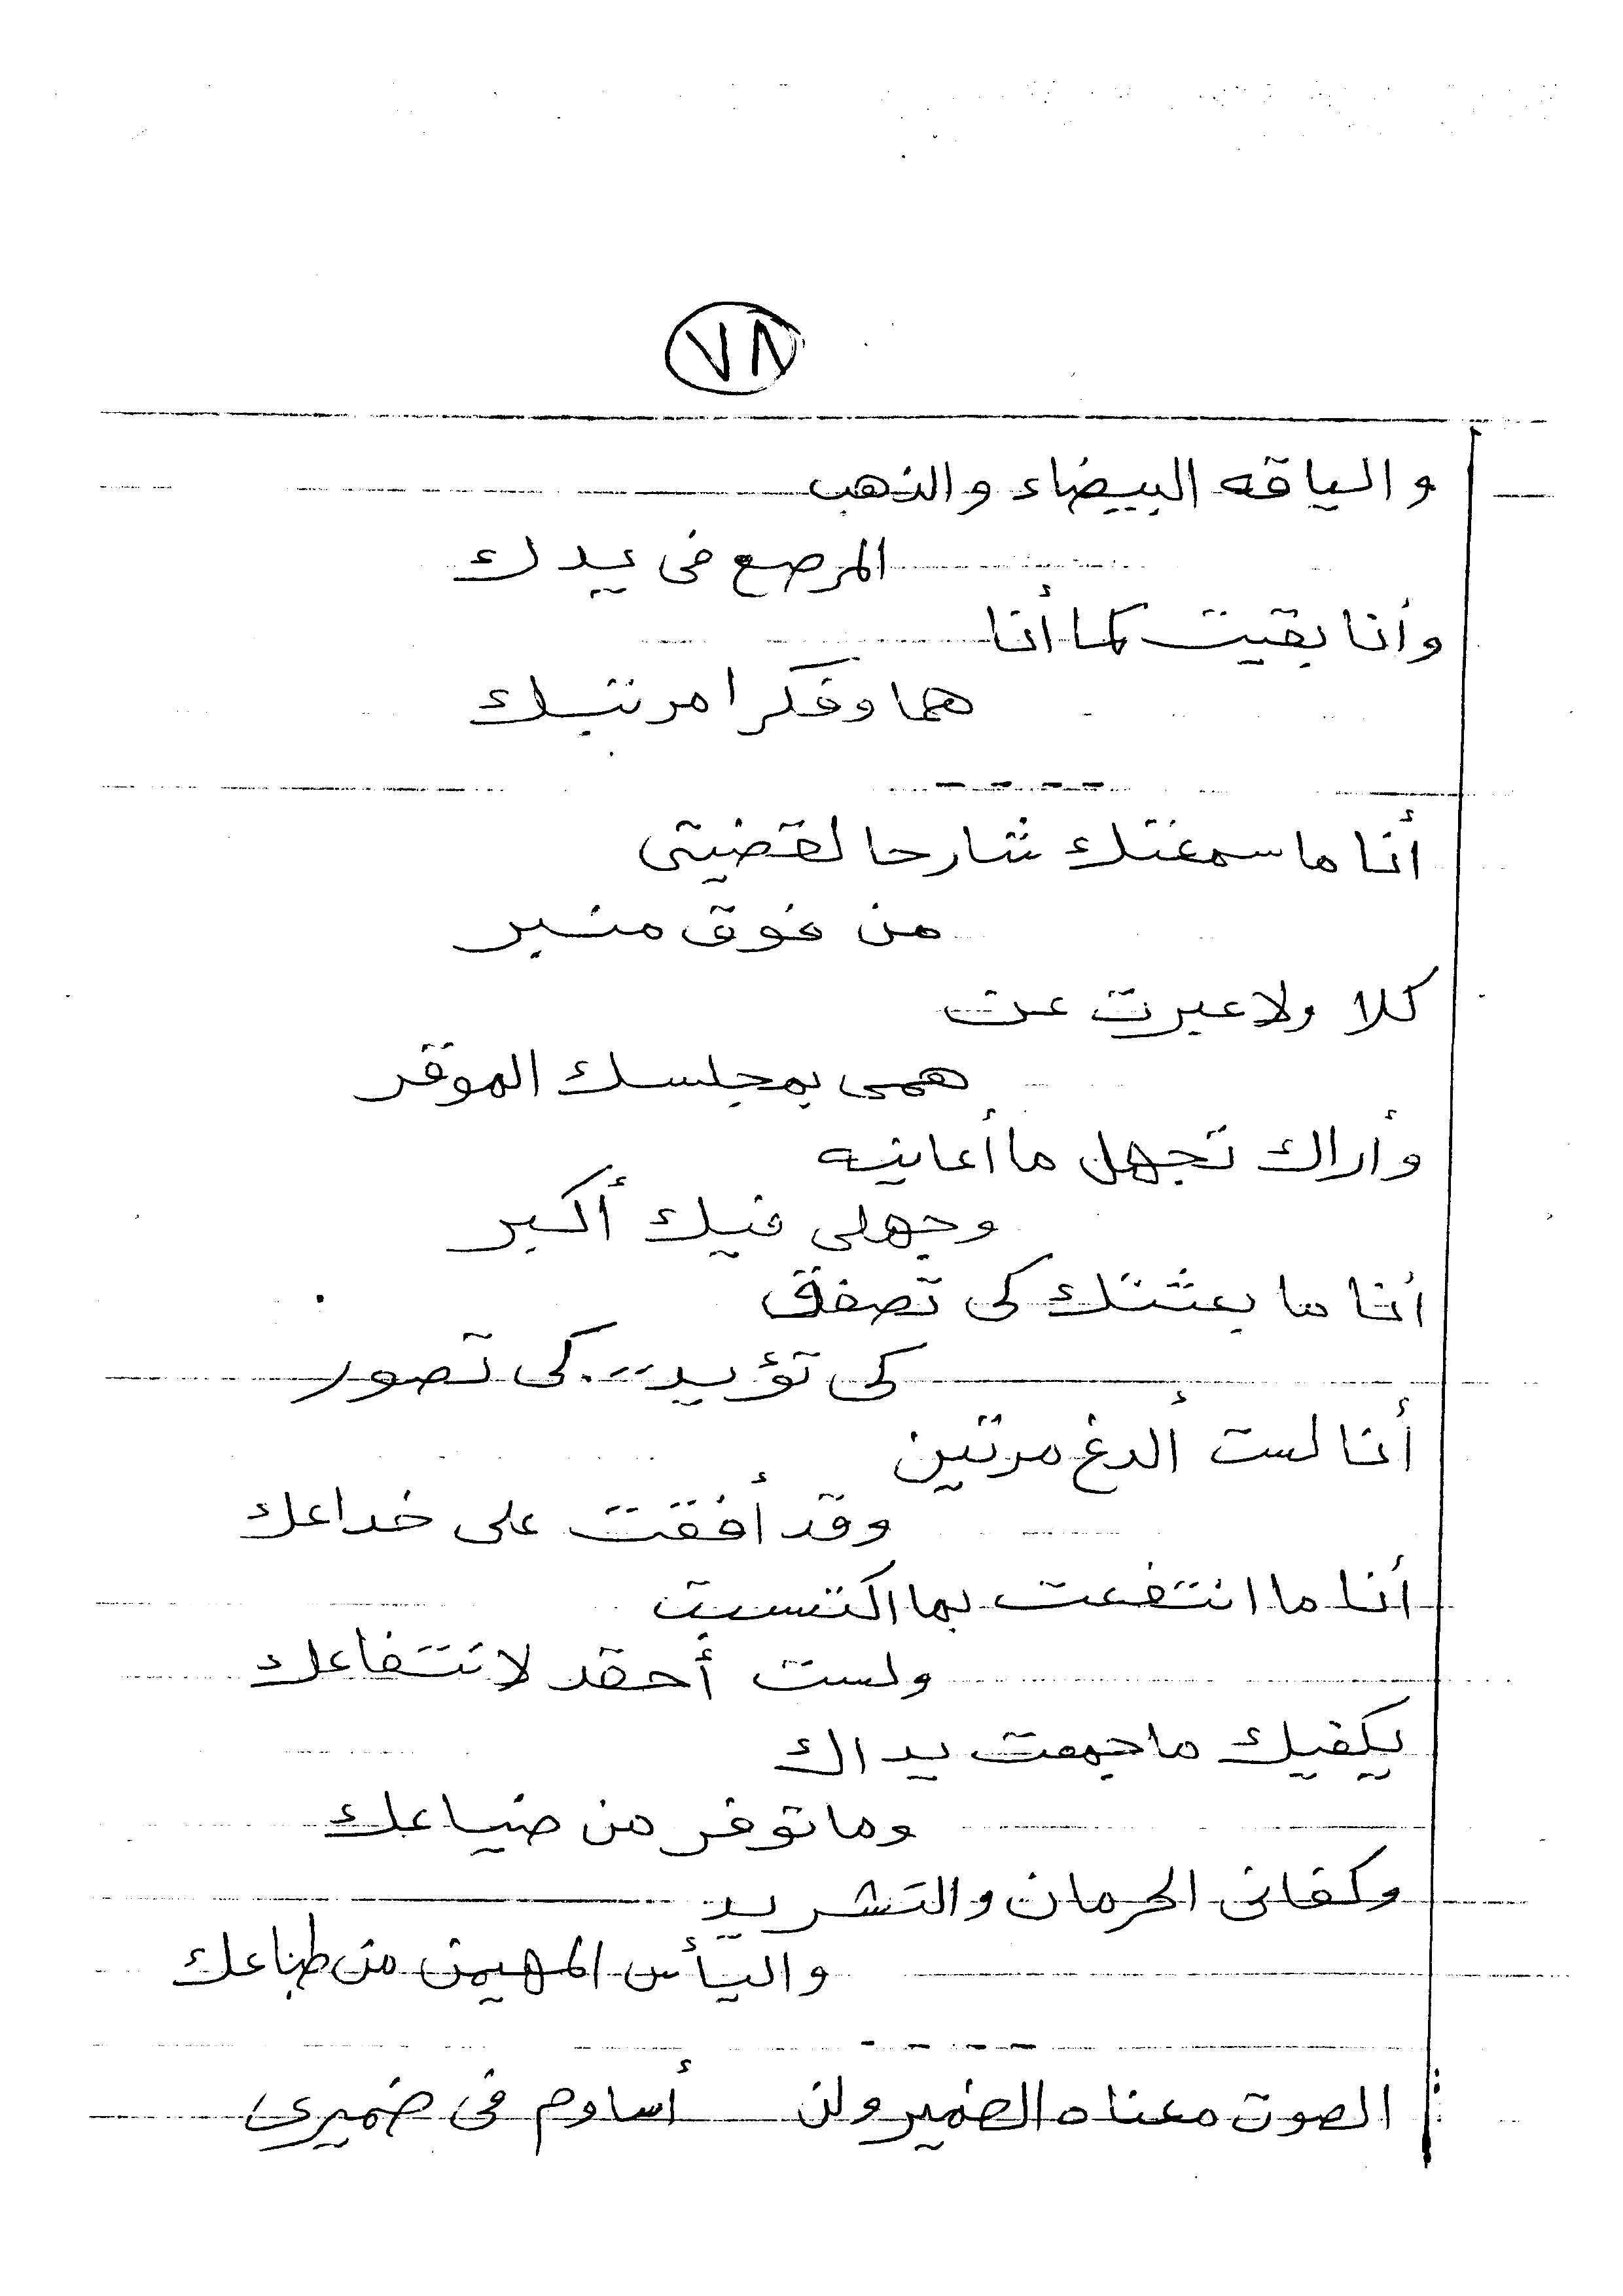 ٧٨
والياقه البيضاء والذهب
المرصع فى يدك
وأنا بقيت كما أنا
هما وفكرا مرتبك
أنا ما سمعتك شارحا لقضيتى
من فوق منبر
كلا ولا عبرت عن
همى بمجلسك الموقر
وأراك تجهل ما أعانيه
وجهلى فيك أكبر
أنا ما بعثتك كى تصفق
كى تؤيد... كى تصور
أنا لست ألدغ مرتين
وقد أفقت على خداعك
أنا ما انتفعت بما اكتسبت
ولست أحقد لانتفاعك
يكفيك ما جمعت يداك
وما توفر من ضياعك
وكفانى الحرمان والتشريد
واليأس المهيمن من طباعك
الصوت معناه الضمير ولن أساوم فى ضميرى